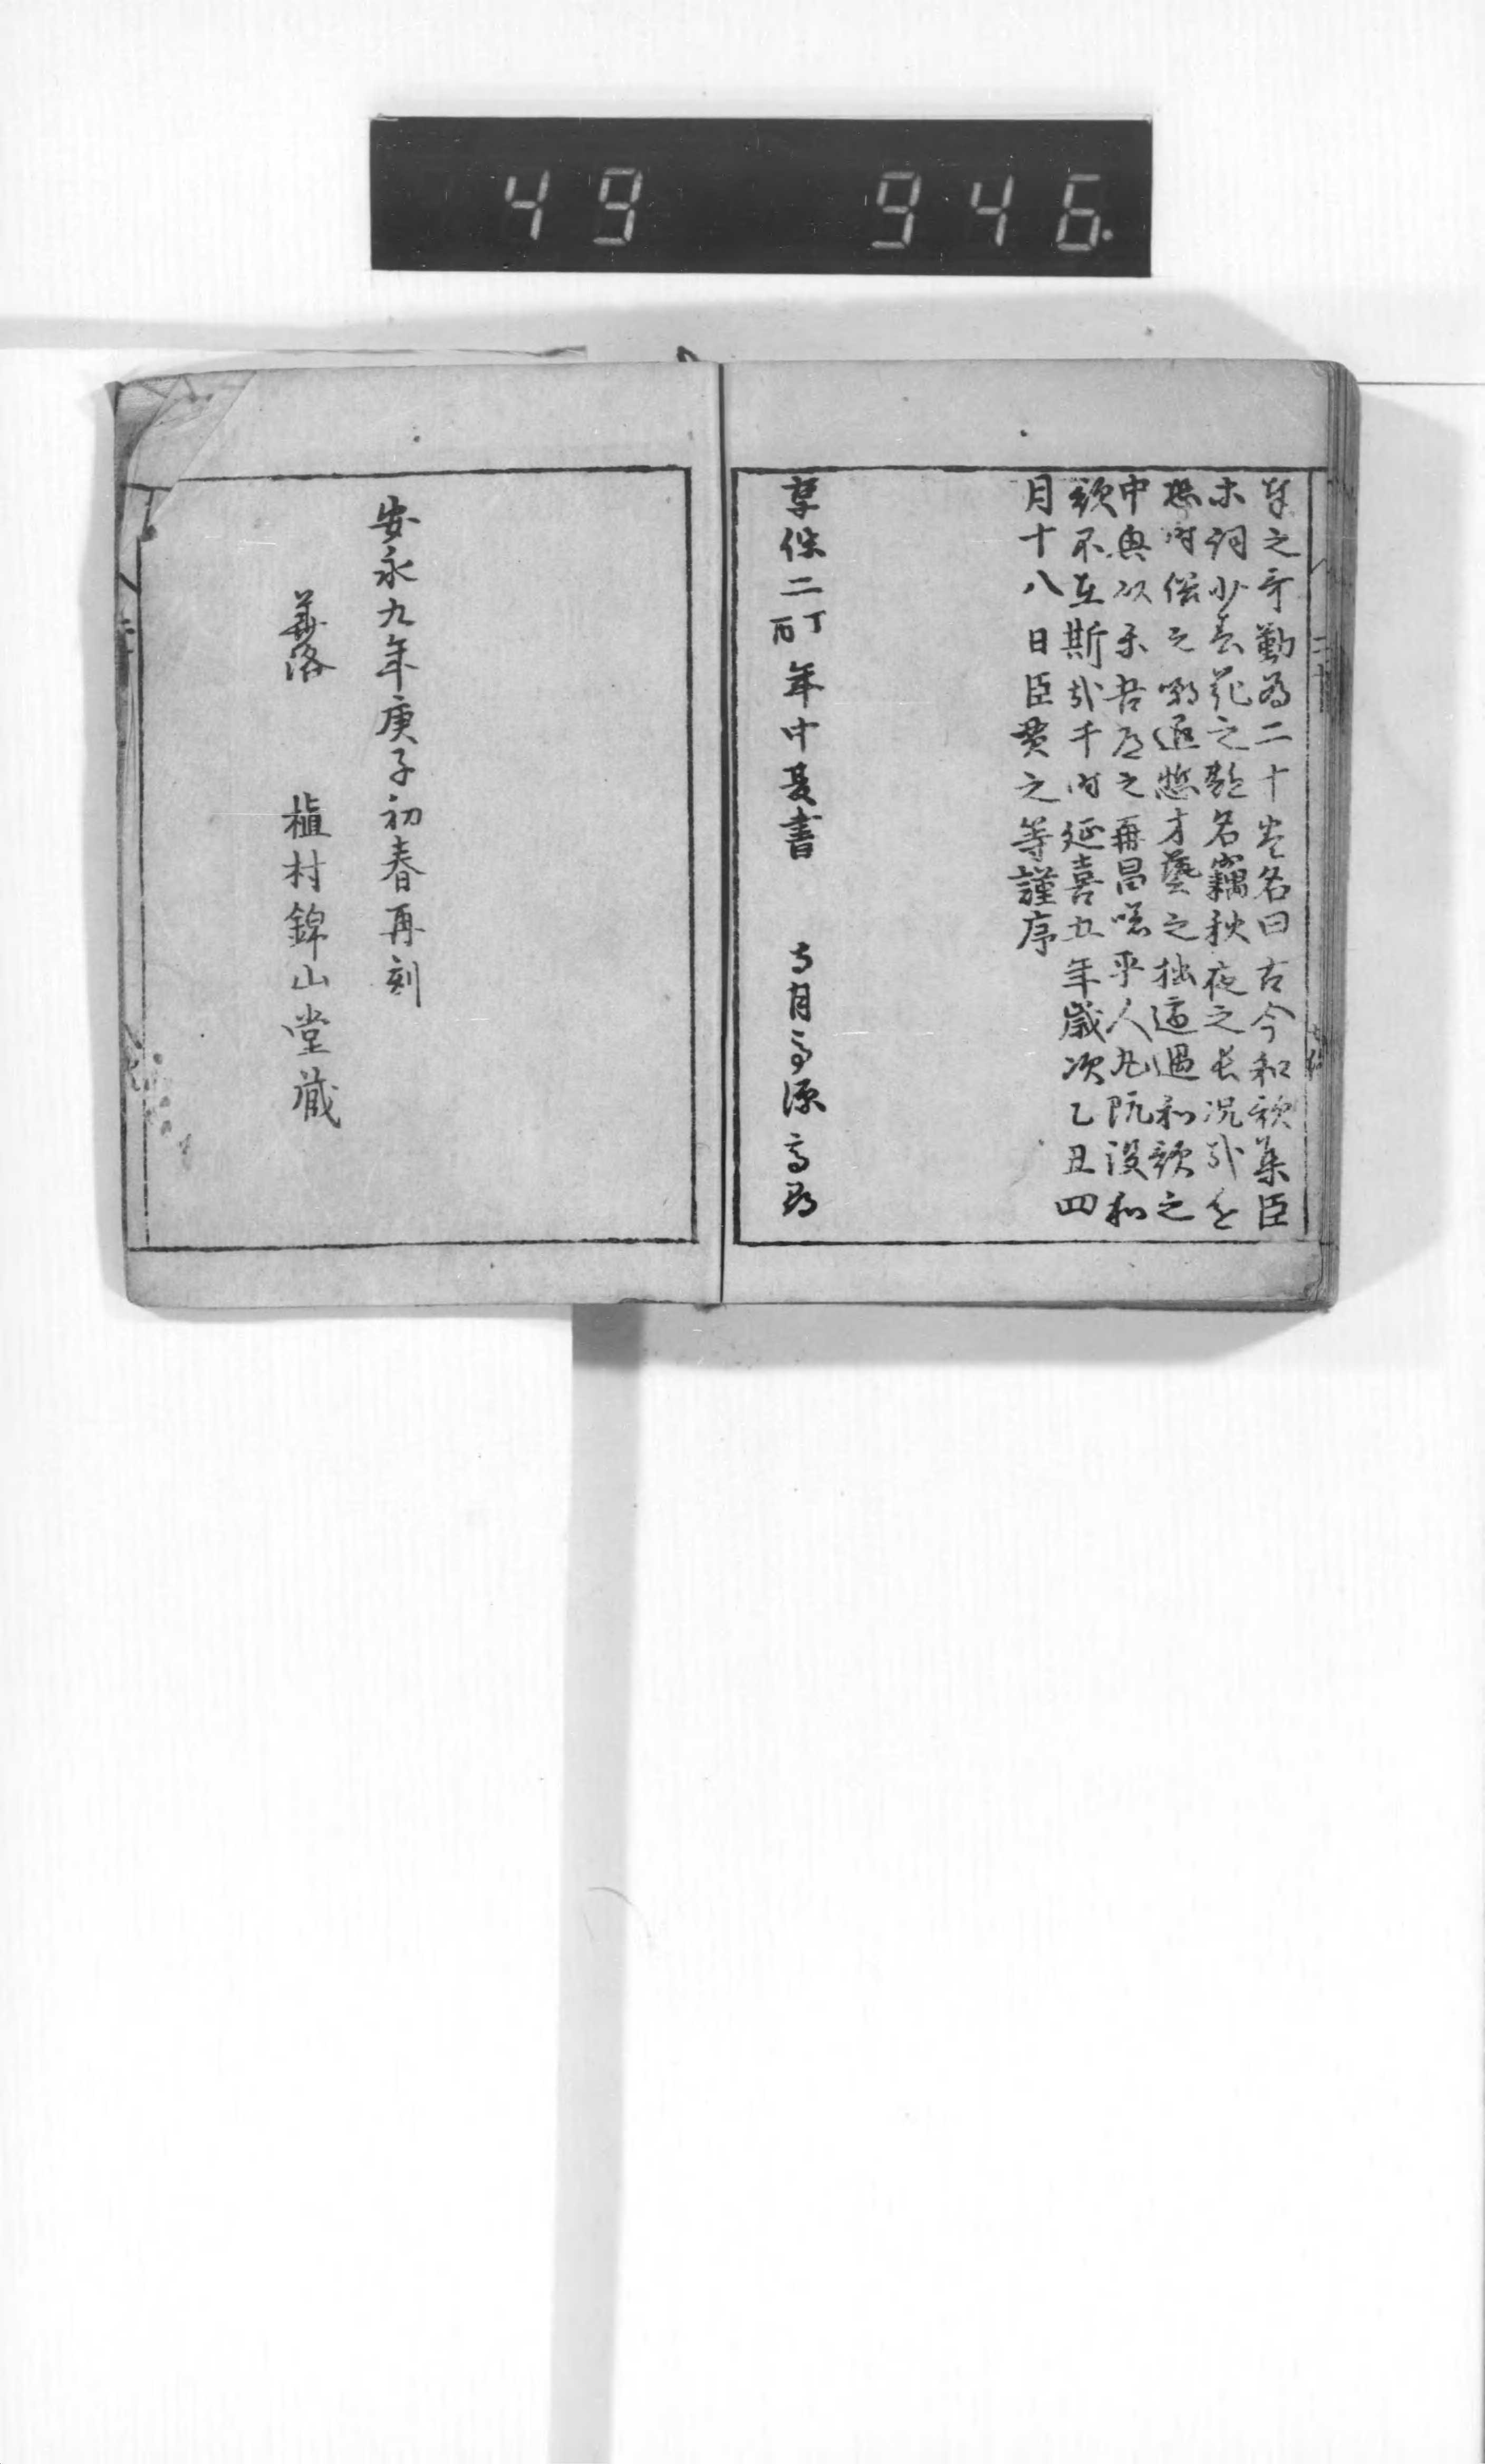 49 946.
奉之哥勤為二十巻名曰古今和歌集臣
等詞少春花之艶名竊秋夜之長况哉進
恐時俗之嘲退慙才藝之拙適遇和歌之
中興以樂吾道之再昌嗟乎人丸既没和
歌不在斯哉于時延喜五年歳次乙丑四
月十八日臣貫之等謹序
享保二丁酉年中夏書
安永九年庚子初春再刻
華洛 植村錦山堂蔵